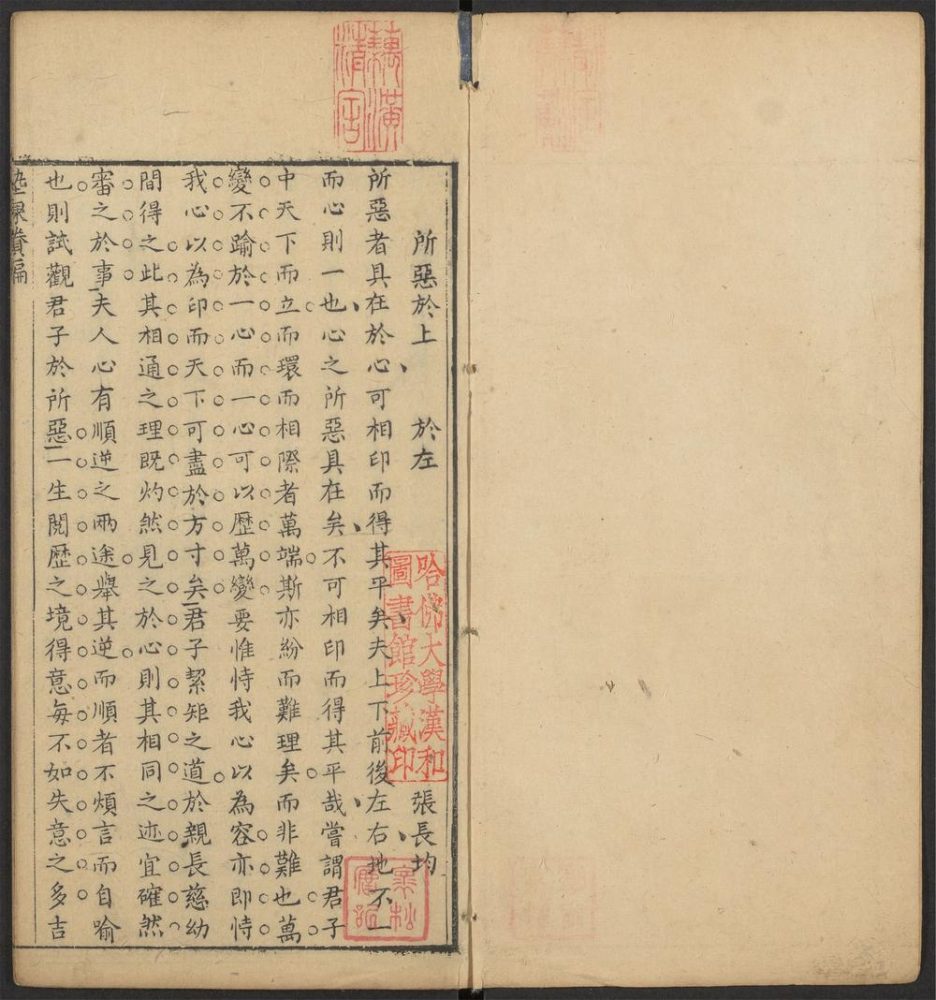 所惡於上 於左 張長均
所惡者具在於心可相印而得其平矣夫上下前後左右地不一
而心則一也心之所惡具在矣不可相印而得其平哉嘗謂君子
中天下而立而環而相際者萬端斯亦紛而難理矣而非難也萬
變不踰於一心而一心可以歷萬變要惟恃我心以為容亦即恃
我心以為印而天下可盡於方寸矣君子絜矩之道於親長慈幼
間得之此其相通之理既灼然見之於心則其相同之迹宜確然
審之於事夫人心有順逆之兩途舉其逆而順者不煩言而自喻
也則試觀君子於所惡一生閱歷之境得意每不如失意之多吉
哈佛大學漢和
圖書館珍藏印